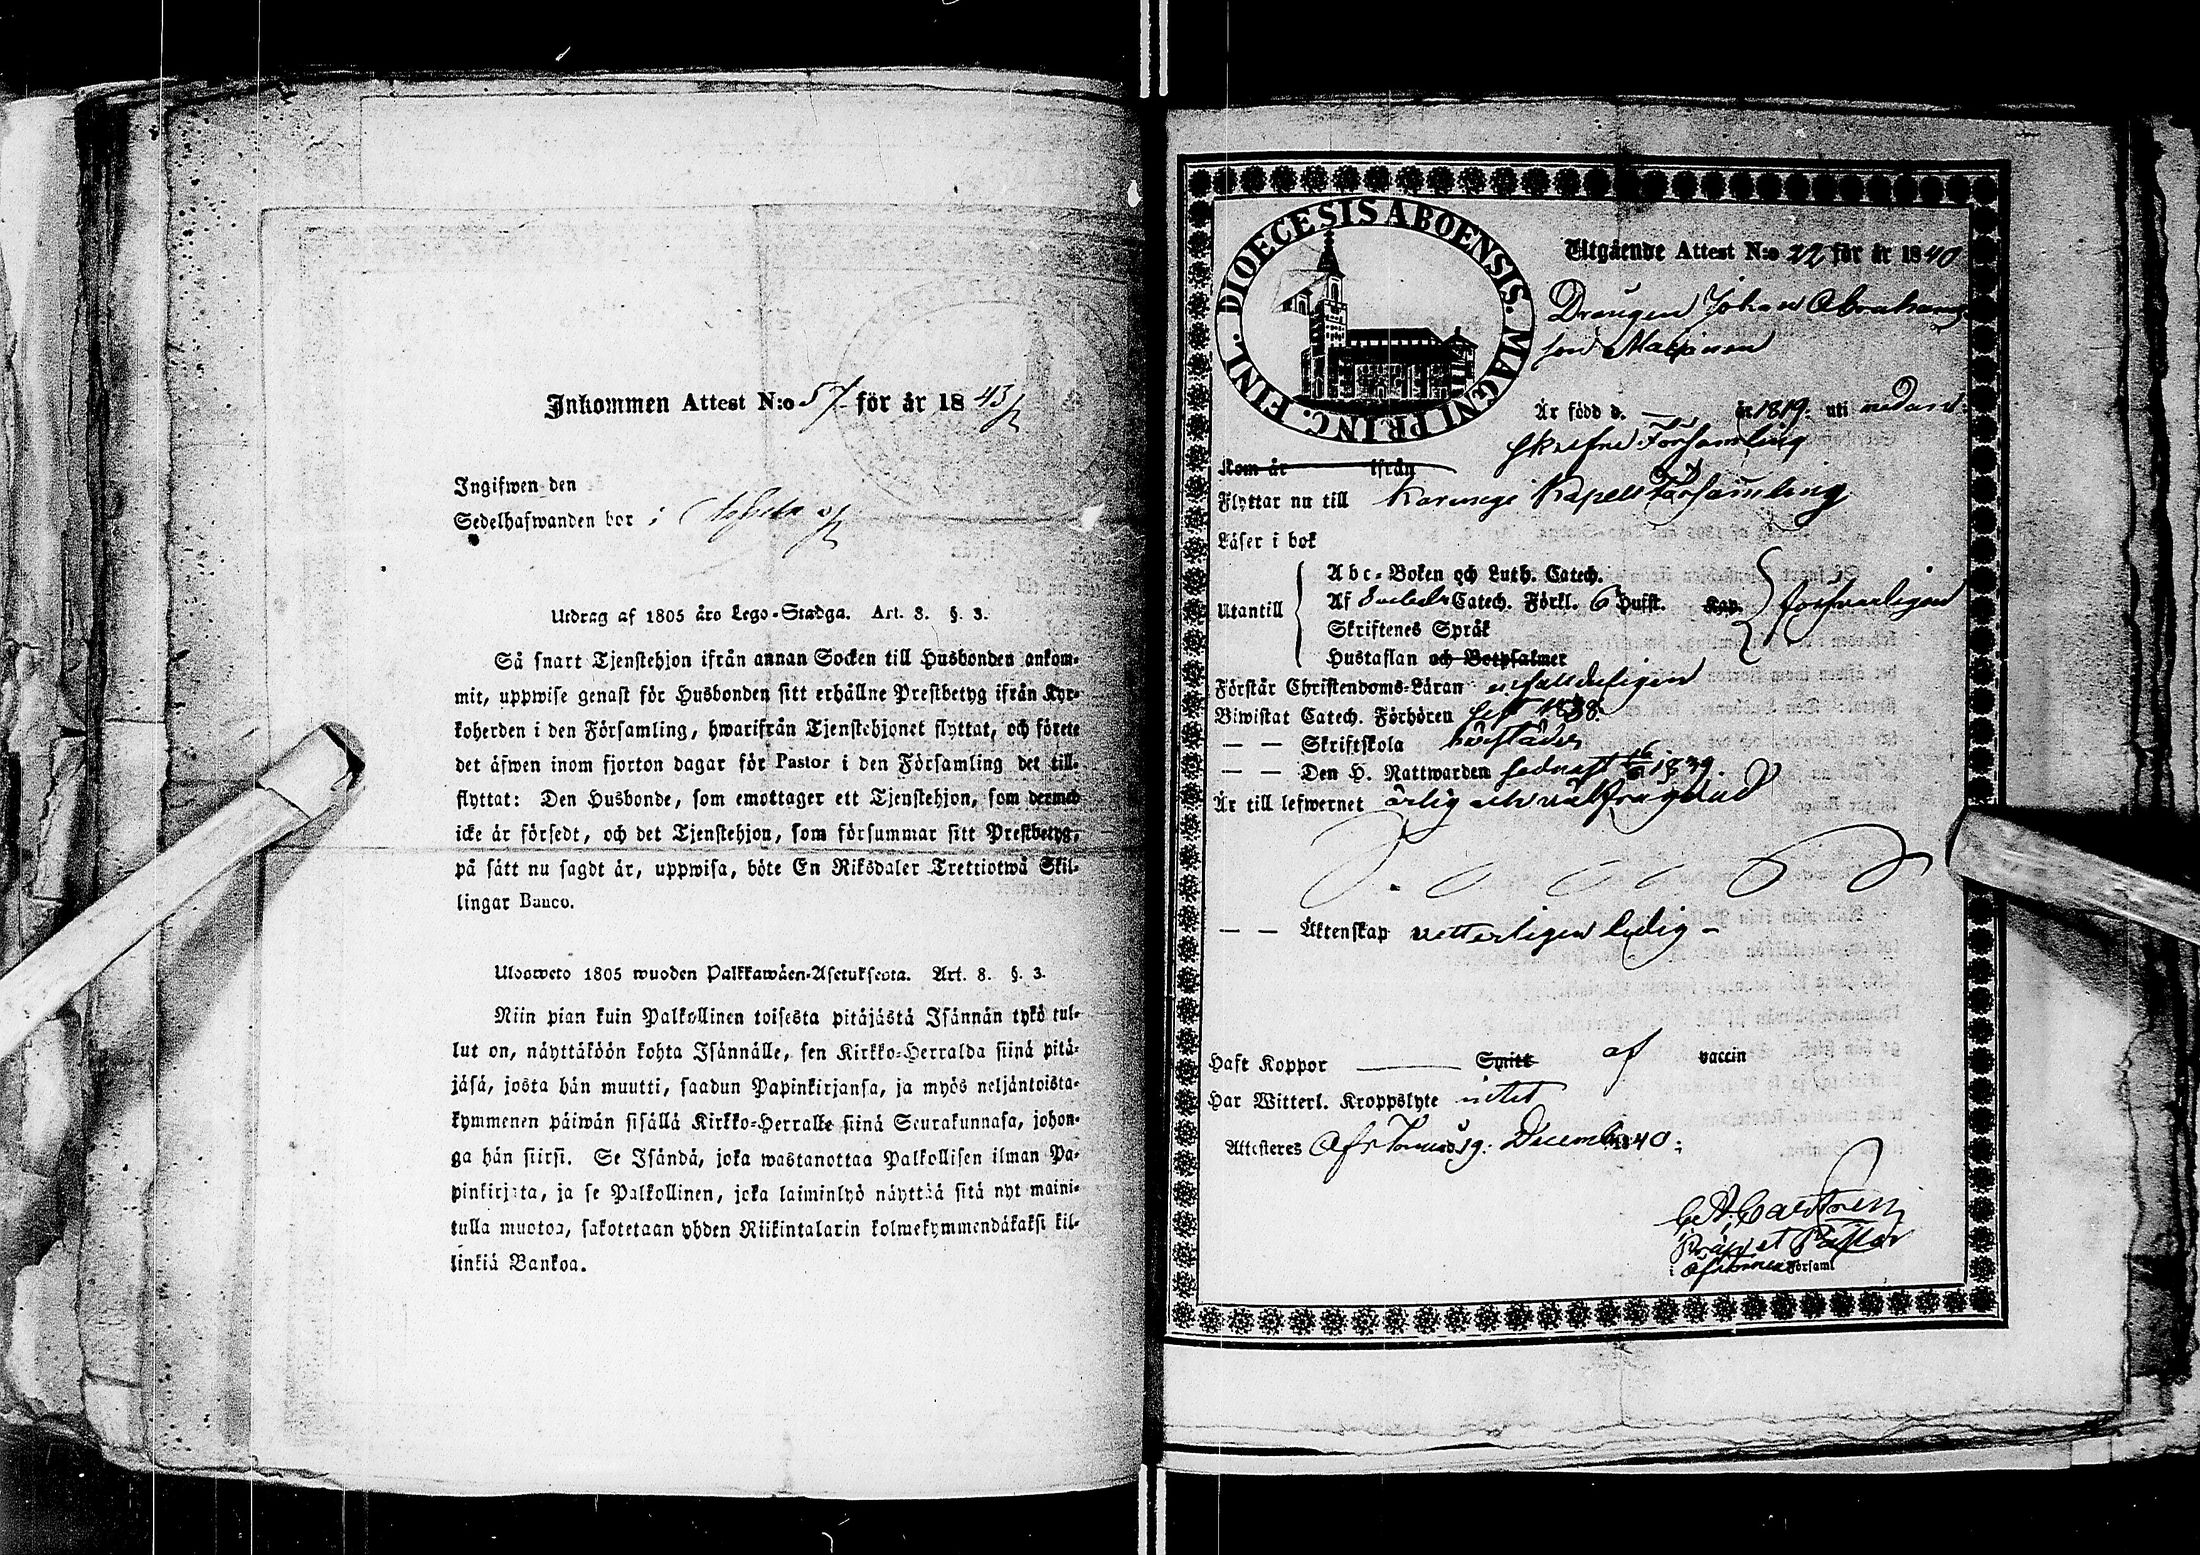 Inkommen Attest N:o 57 för år 1843
Ingifwen den
Sedelhafwanden bor i
Utdrag af 1805 års Lego-Stadga. Art. 8. §. 3.
Så snart Tjenstehjon ifrån annan Socken till Husbonden ankom-
mit, uppwise genast för Husbonden sitt erhållne Prestbetyg ifrån Kyr-
koherden i den Församling, hwarifrån Tjenstehjonet flyttat, och förete
det äfwen inom fjorton dagar för Pastor i den Församling det till-
flyttat: Den Husbonde, som emottager ett Tjenstehjon, som dermed
icke är försedt, och det Tjenstehjon, som försummar sitt Prestbetyg,
på sätt nu sagdt är, uppwisa, böte En Riksdaler Trettiotwå Skil-
lingar Banco.
Ulosweto 1805 wuoden Palkkawäen-Asetuksesta. Art. 8. §. 3.
Niin pian kuin Palkollinen toisesta pitäjästä Isännän tykö tul-
lut on, näyttäköön kohta Isännälle, sen Kirkko-Herralda siinä pitä-
jäsä, josta hän muutti, saadun Papinkirjansa, ja myös neljäntoista-
kymmenen päiwän sisällä Kirkko-Herralle siinä Seurakunnasa, johon-
ga hän siirsi. Se Isändä, joka wastanottaa Palkollisen ilman Pa-
pinkirjata, ja se Palkollinen, joka laiminlyö näyttää sitä nyt maini-
tulla muotoa, sakotetaan yhden Riikintalarin kolmekymmendäkaksi kil-
linkiä Bankoa.
DIOECESIS ABOENSIS. MAGNI PRINC. FINL.
Utgående Attest N:o 22 för år 1840
Drängen Johan Abrahams
son
Är född d. — år 1819 uti nedan
skrefne Församling
Kom år ifrån
Flyttar nu till Karungi Kapells Församling
Läser i bok
Abc-Boken och Luth. Catech.
Utantill Af Svebelii Catech. Förkl. 6 Hufst. Kap. försvarligen
Skriftenes Språk
Hustaflan och Botpsalmer
Förstår Christendoms-Läran enfaldeligen
Biwistat Catech. Förhören sist 1838.
— — Skriftskola bevistades
— — Den H. Nattwarden sednast 1839.
Är till lefwernet ärlig och välfrägdad
— — Äktenskap vetterligen ledig –
Haft Koppor — Smitt af vaccin
Har Witterl. Kroppslyte intet
Attesteres Öfr Torneå 9. December 1840:
Castrén
Präp. et Pastor
i Öf. Torneå Församl